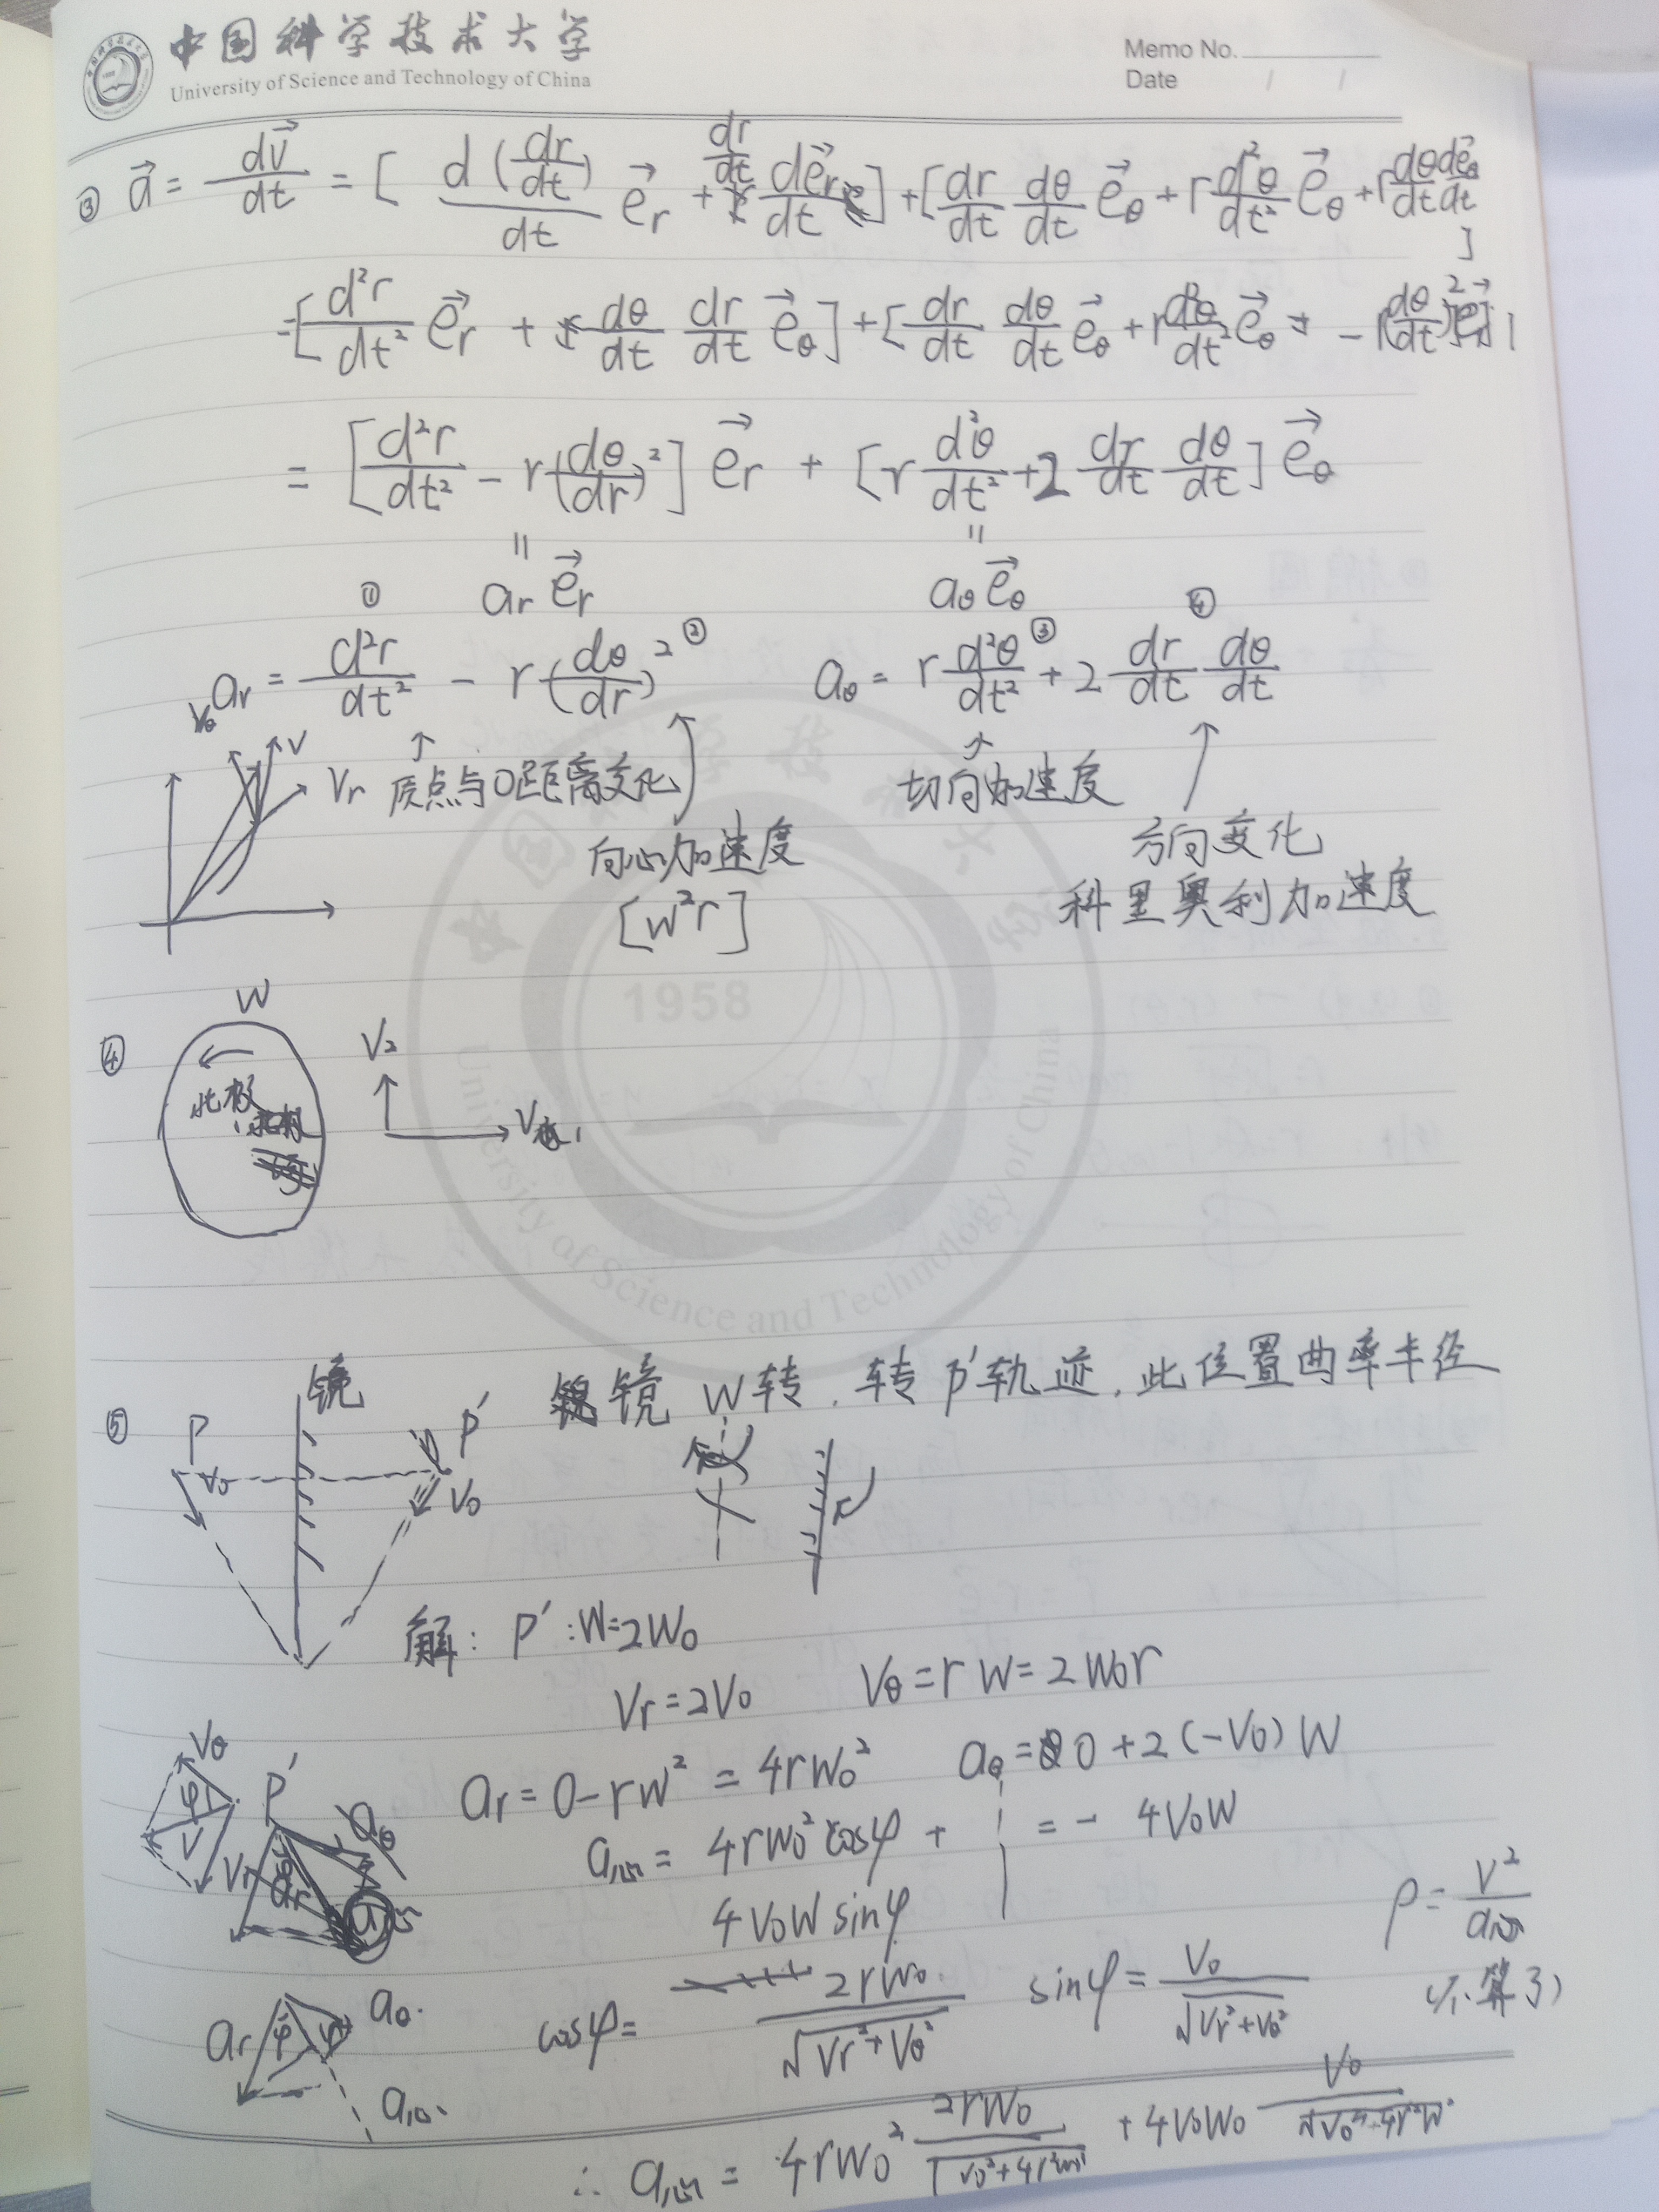 中国科学技术大学
University of Science and Technology of China
Memo No.
Date / /
③ \vec{a} = \frac{d\vec{v}}{dt} = [ \frac{d(\frac{dr}{dt})}{dt} \vec{e_r} + \frac{dr}{dt} \frac{d\vec{e_r}}{dt} ] + [ \frac{dr}{dt} \frac{dθ}{dt} \vec{e_θ} + r \frac{d^2θ}{dt^2} \vec{e_θ} + r \frac{dθ}{dt} \frac{d\vec{e_θ}}{dt} ]
= [ \frac{d^2r}{dt^2} \vec{e_r} + \frac{dθ}{dt} \frac{dr}{dt} \vec{e_θ} ] + [ \frac{dr}{dt} \frac{dθ}{dt} \vec{e_θ} + r \frac{d^2θ}{dt^2} \vec{e_θ} - r (\frac{dθ}{dt})^2 \vec{e_r} ]
= [ \frac{d^2r}{dt^2} - r (\frac{dθ}{dr})^2 ] \vec{e_r} + [ r \frac{d^2θ}{dt^2} + 2 \frac{dr}{dt} \frac{dθ}{dt} ] \vec{e_θ}
= =
① a_r \vec{e_r} a_θ \vec{e_θ} ④
a_r = \frac{d^2r}{dt^2} - r (\frac{dθ}{dr})^2 ② a_θ = r \frac{d^2θ}{dt^2} ③ + 2 \frac{dr}{dt} \frac{dθ}{dt}
V_θ V V_r ↑ 质点与O距离变化 切向加速度
向心加速度 方向变化
[w^2r] 科里奥利加速度
④ W
北极 V_2
V_1
1958
University of Science and Technology of China
⑤ P 镜 P' 镜 W转. 转 P'轨迹, 此位置曲率半径
V_0 V_0
解: P': W=2W_0
V_r = 2V_0 V_θ = rW = 2W_0r
V_θ φ V V_r P' a_θ a_r
a_r = 0 - rw^2 = 4rW_0^2 a_θ = 0 + 2(-V_0)W
= - 4V_0W
a_向 = 4rW_0^2 cosφ +
4V_0W sinφ
ρ = \frac{V^2}{a_向}
(不算了)
cosφ = \frac{2rW_0}{\sqrt{V_r^2 + V_θ^2}} sinφ = \frac{V_0}{\sqrt{V_r^2 + V_θ^2}}
a_r φ φ a_θ
a_向
∴ a_向 = 4rW_0^2 \frac{2rW_0}{\sqrt{V_0^2 + 4r^2W_0^2}} + 4V_0W_0 \frac{V_0}{\sqrt{V_0^2 + 4r^2W^2}}